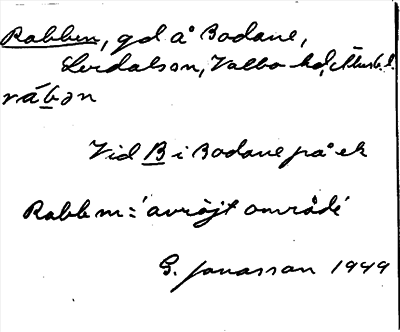 Rabben, gd å Bodane,
Lerdalson, Valbo hd, Älvsb.l.
rábən
Vid B i Bodane på ek
Rabben = 'avröjt område'
G. Jonasson 1949